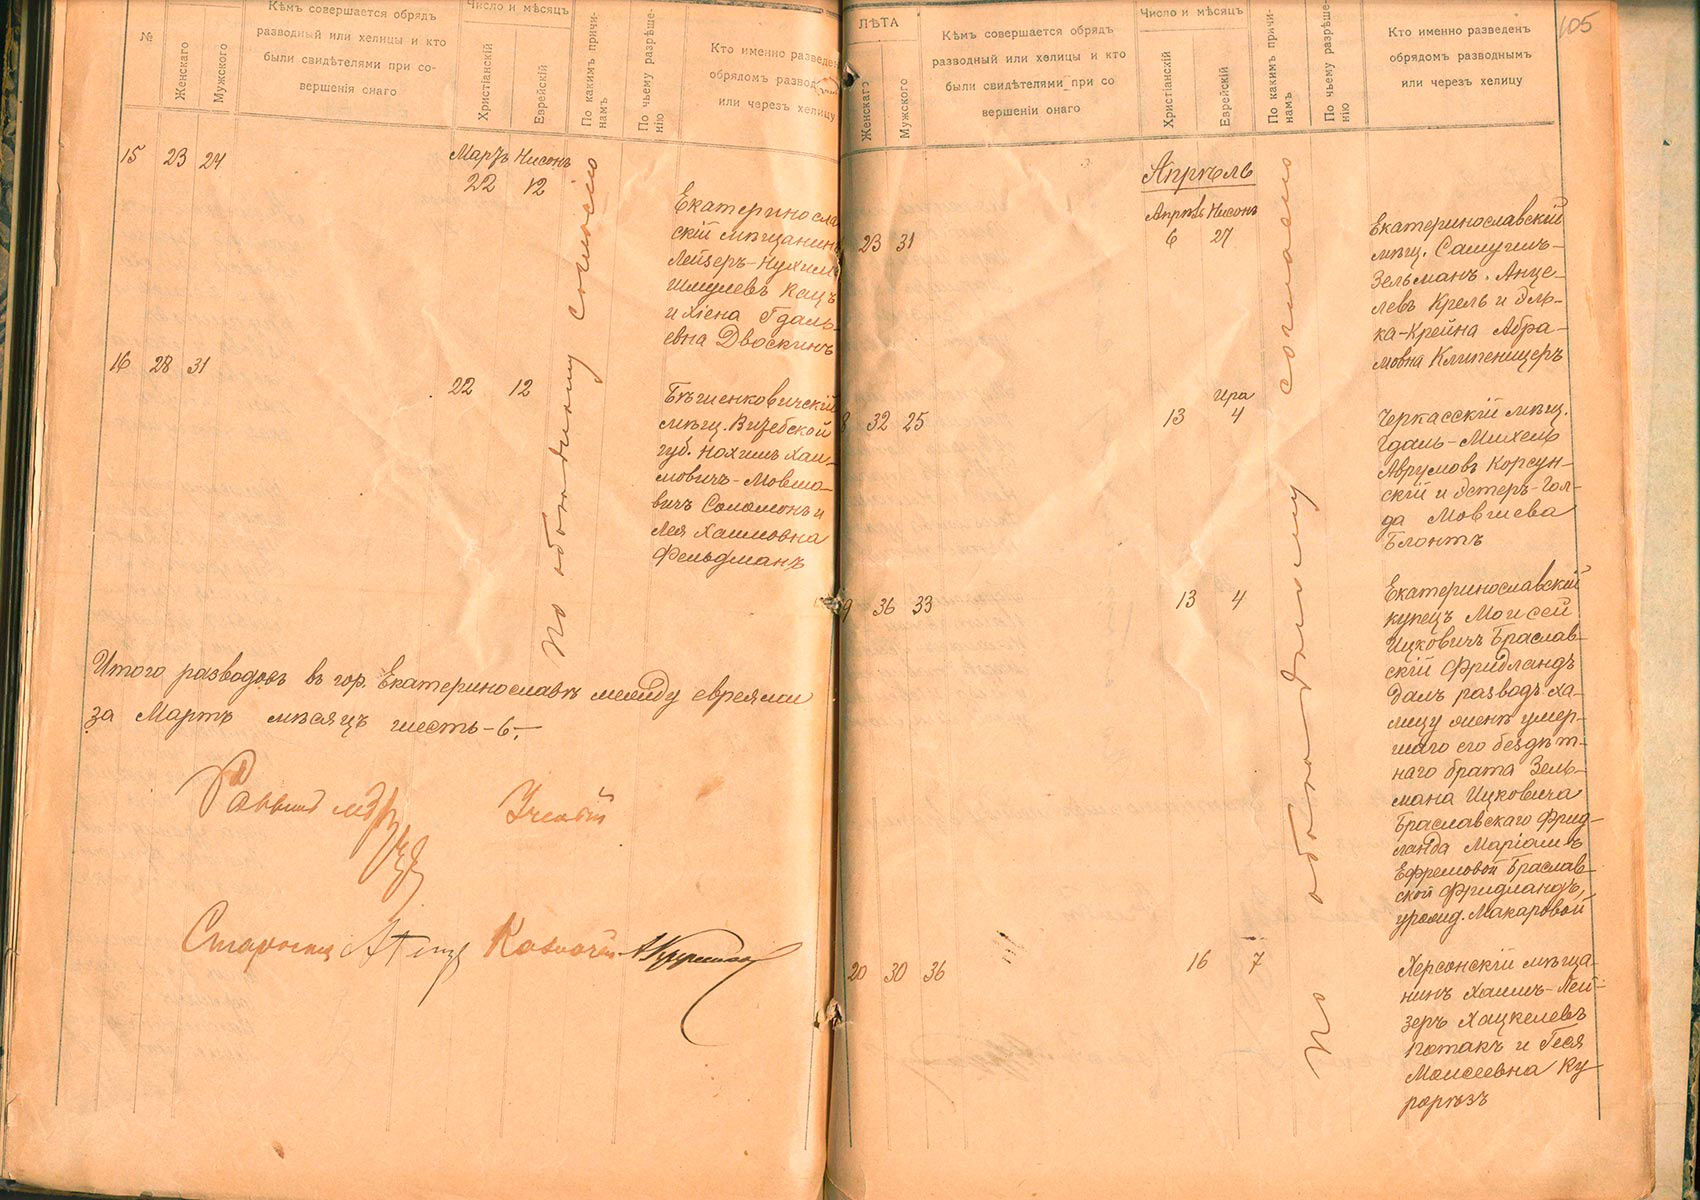 №
Женскаго
Мужского
Кѣмъ совершается обрядъ
разводный или хелицы и кто
были свидѣтелями при со-
вершенія онаго
Число и мѣсяцъ
Христіанскій
Еврейскій
По какимъ причи-
намъ
По чьему разрѣше-
нію
Кто именно разведенъ
обрядомъ
или черезъ хелицу
15 23 24
Мартъ Нисонъ
22 12
Екатеринослав
скій мѣщанинъ
Лейзеръ-Нухим
Шмулевъ Кацъ
и Хіена Гдаль-
евна Двоскинъ
16 28 31
22 12
Бѣшенковичскій
мѣщ. Витебской
губ. Нохимъ Хаи-
мовичъ-Мовшо-
вичъ Соломонъ и
Лея Хаимовна
Фельдманъ
По обоюдному согласію
Итого разводовъ въ гор. Екатеринославѣ между евреями
за Мартъ мѣсяцъ шесть-6.-
Раввинъ
Ученый
Староста
Казначей
105
ЛѢТА
Женскаго
Мужского
Кѣмъ совершается обрядъ
разводный или хелицы и кто
были свидѣтелями при со
вершеніи онаго
Число и мѣсяцъ
Христіанскій
Еврейскій
По какимъ причи-
намъ
По чьему разрѣше-
нію
Кто именно разведенъ
обрядомъ разводнымъ
или черезъ хелицу
Апрѣль
Апрѣль Нисонъ
23 31
6 27
Екатеринославскій
мѣщ. Самуилъ-
Зельманъ. Анце-
левъ Крель и Эль-
ка-Крейна Абра-
мовна Клипеницеръ
8 32 25
Ира
13 4
Черкасскій мѣщ.
Гдаль-Михель
Аврумовъ Корсун-
скій и Эстеръ-Гол-
да Мовшева
Блонтъ
9 36 33
13 4
Екатеринославскій
купецъ Моисей
Ицковичъ Браслав-
скій Фридландъ
далъ разводъ ха-
лицу женѣ умер-
шаго его бездѣт-
наго брата Зель-
мана Ицковича
Браславскаго Фрид-
ланда Маріамъ
Ефремовой Браслав-
ской Фридландъ,
урожд. Макаровой
20 30 36
16 7
Херсонскій мѣща-
нинъ Хаимъ-Лей-
зеръ Хацкелевъ
Потакъ и Геся
Моисеевна Ку
По обоюдному согласію